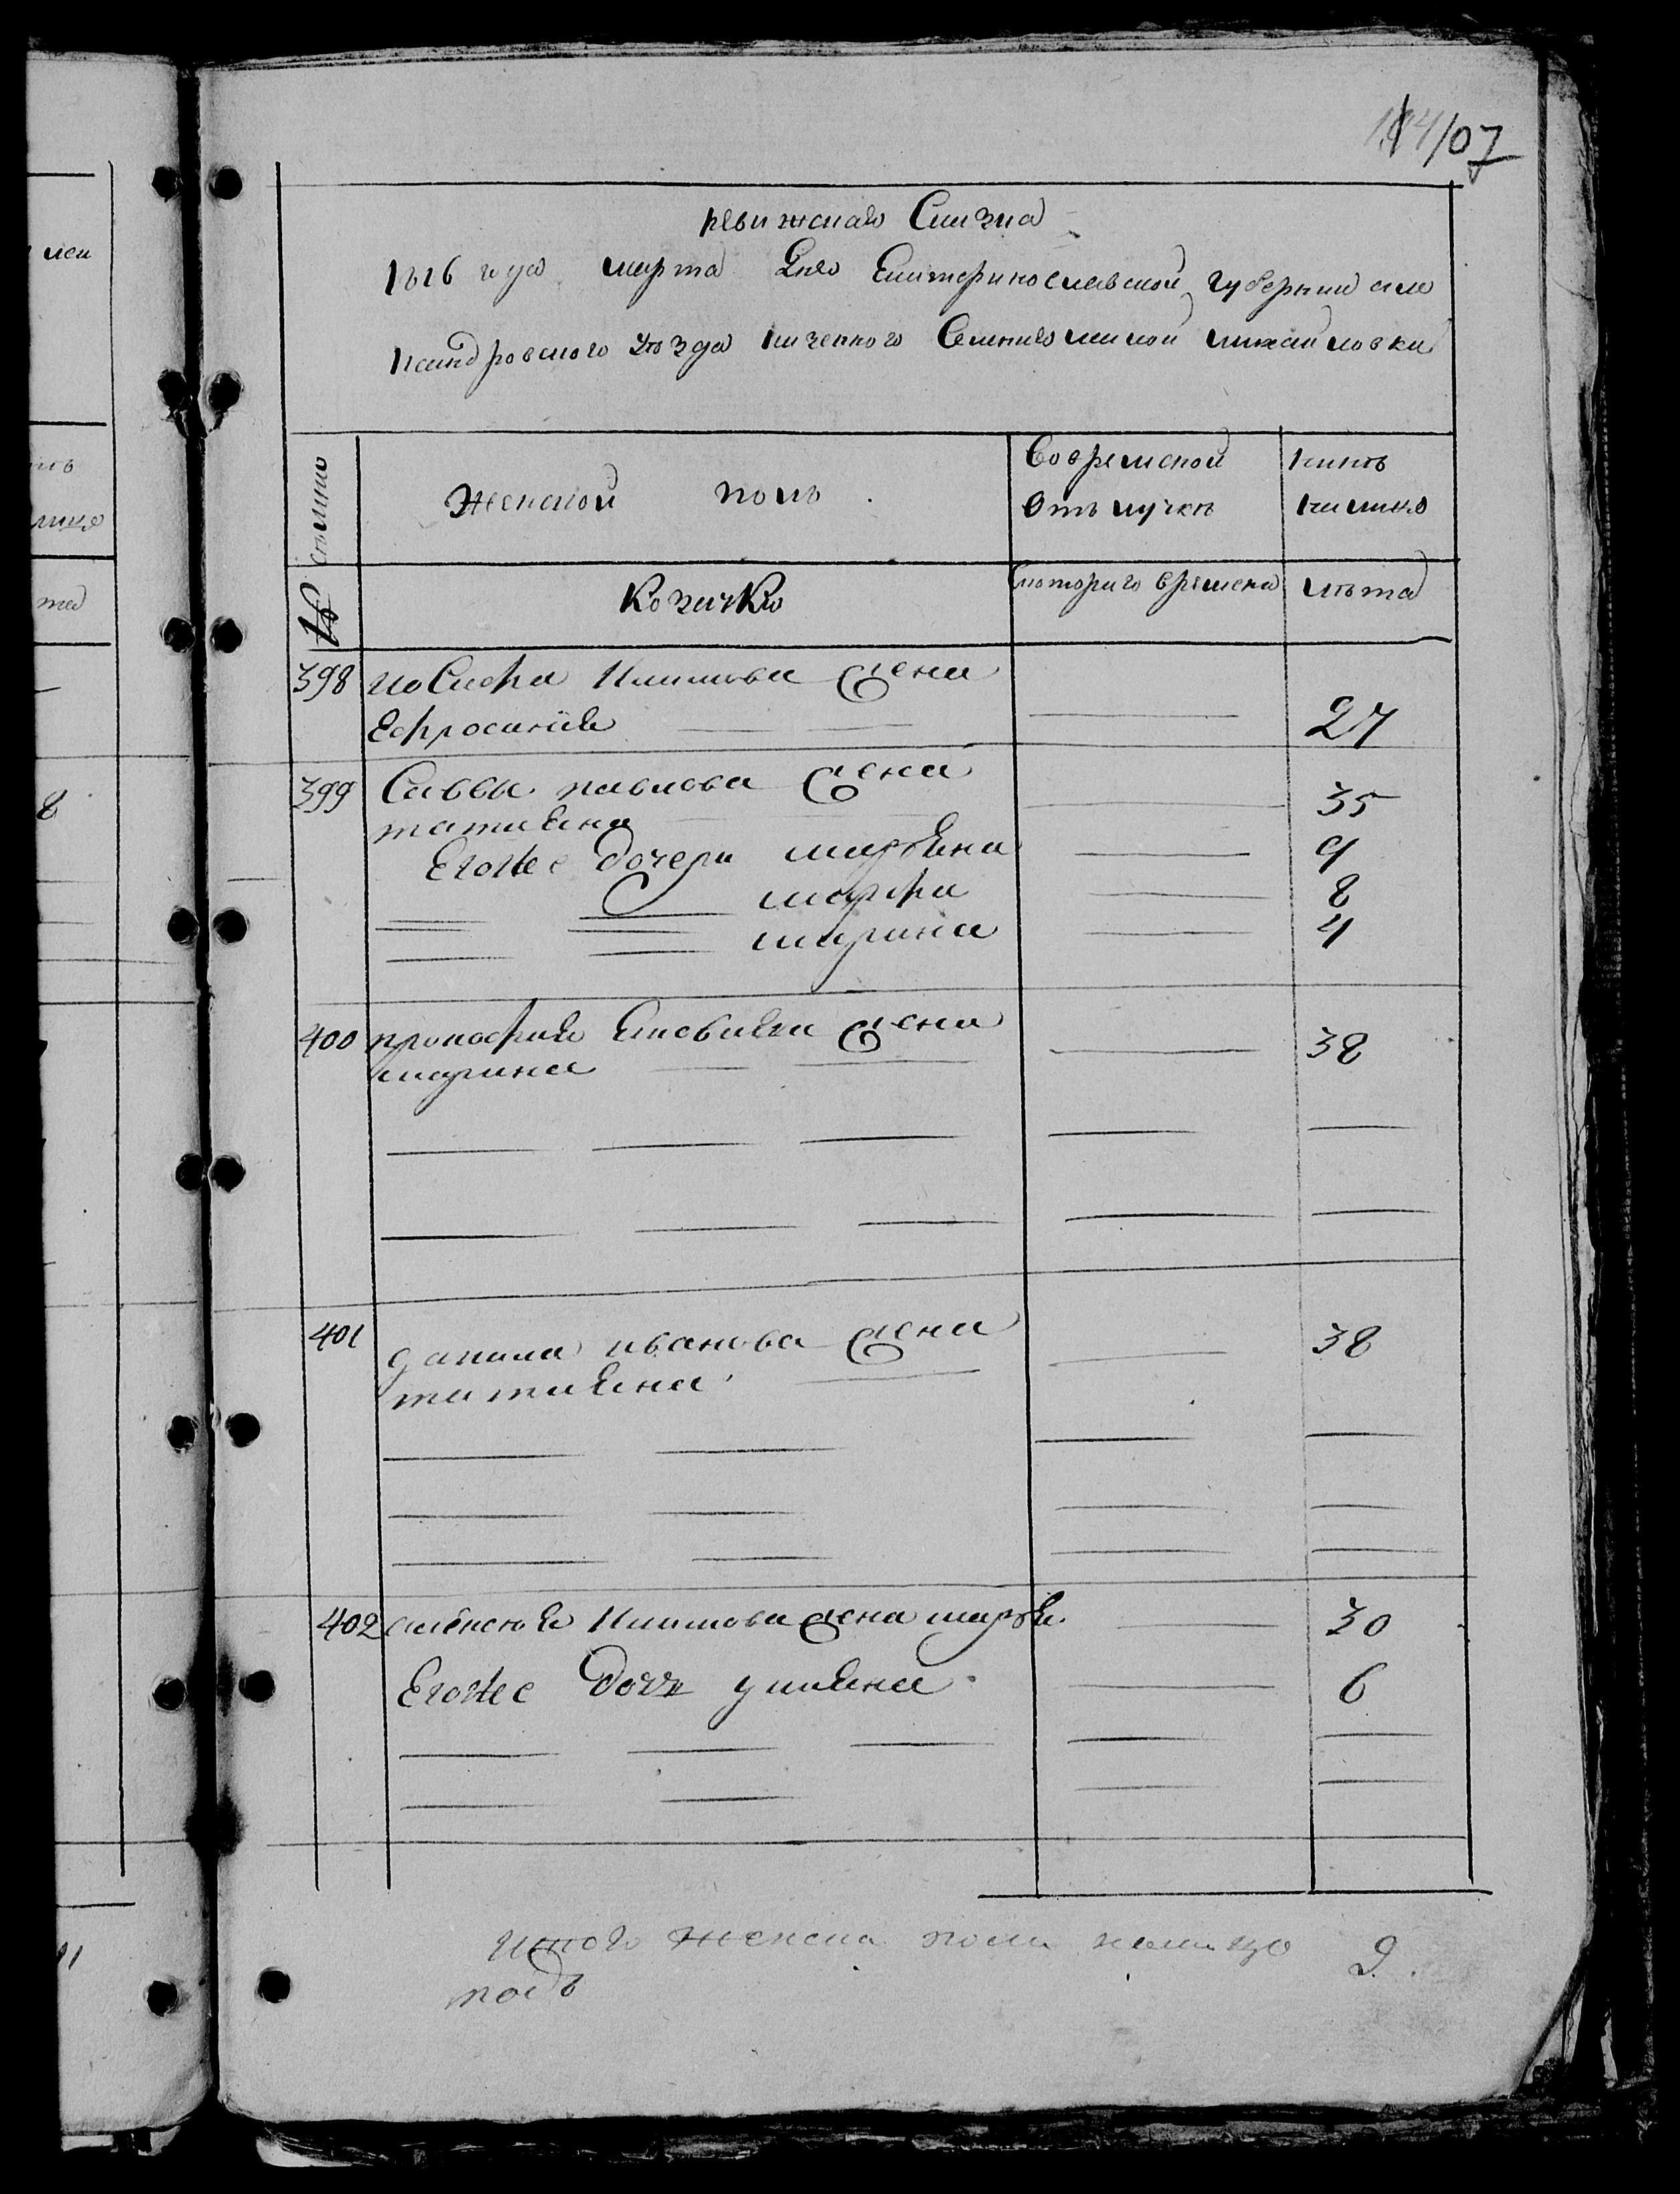 107
ревижская Сказка
1816 года марта дня Екатеринославской губернии але
ксандровского уѣзда казенного Селения малой михайловки
семьи
Женской полъ.
Во временной
отълучкѣ
нынѣ
налицо
№
Козачкы
скоторого времени
лѣта
398 иосифа Климова жена
Ефросиния 27
399 Саввы павлова жена
татияна 35
Егоже дочери марьяна 9
марфа 8
марина 4
400 прокофия жена
марина 38
401 данила иванова жена
татияна 38
402 алексея Климова жена марья 30
Егоже дочь ульяна 6
Итого женска пола налицо 9.